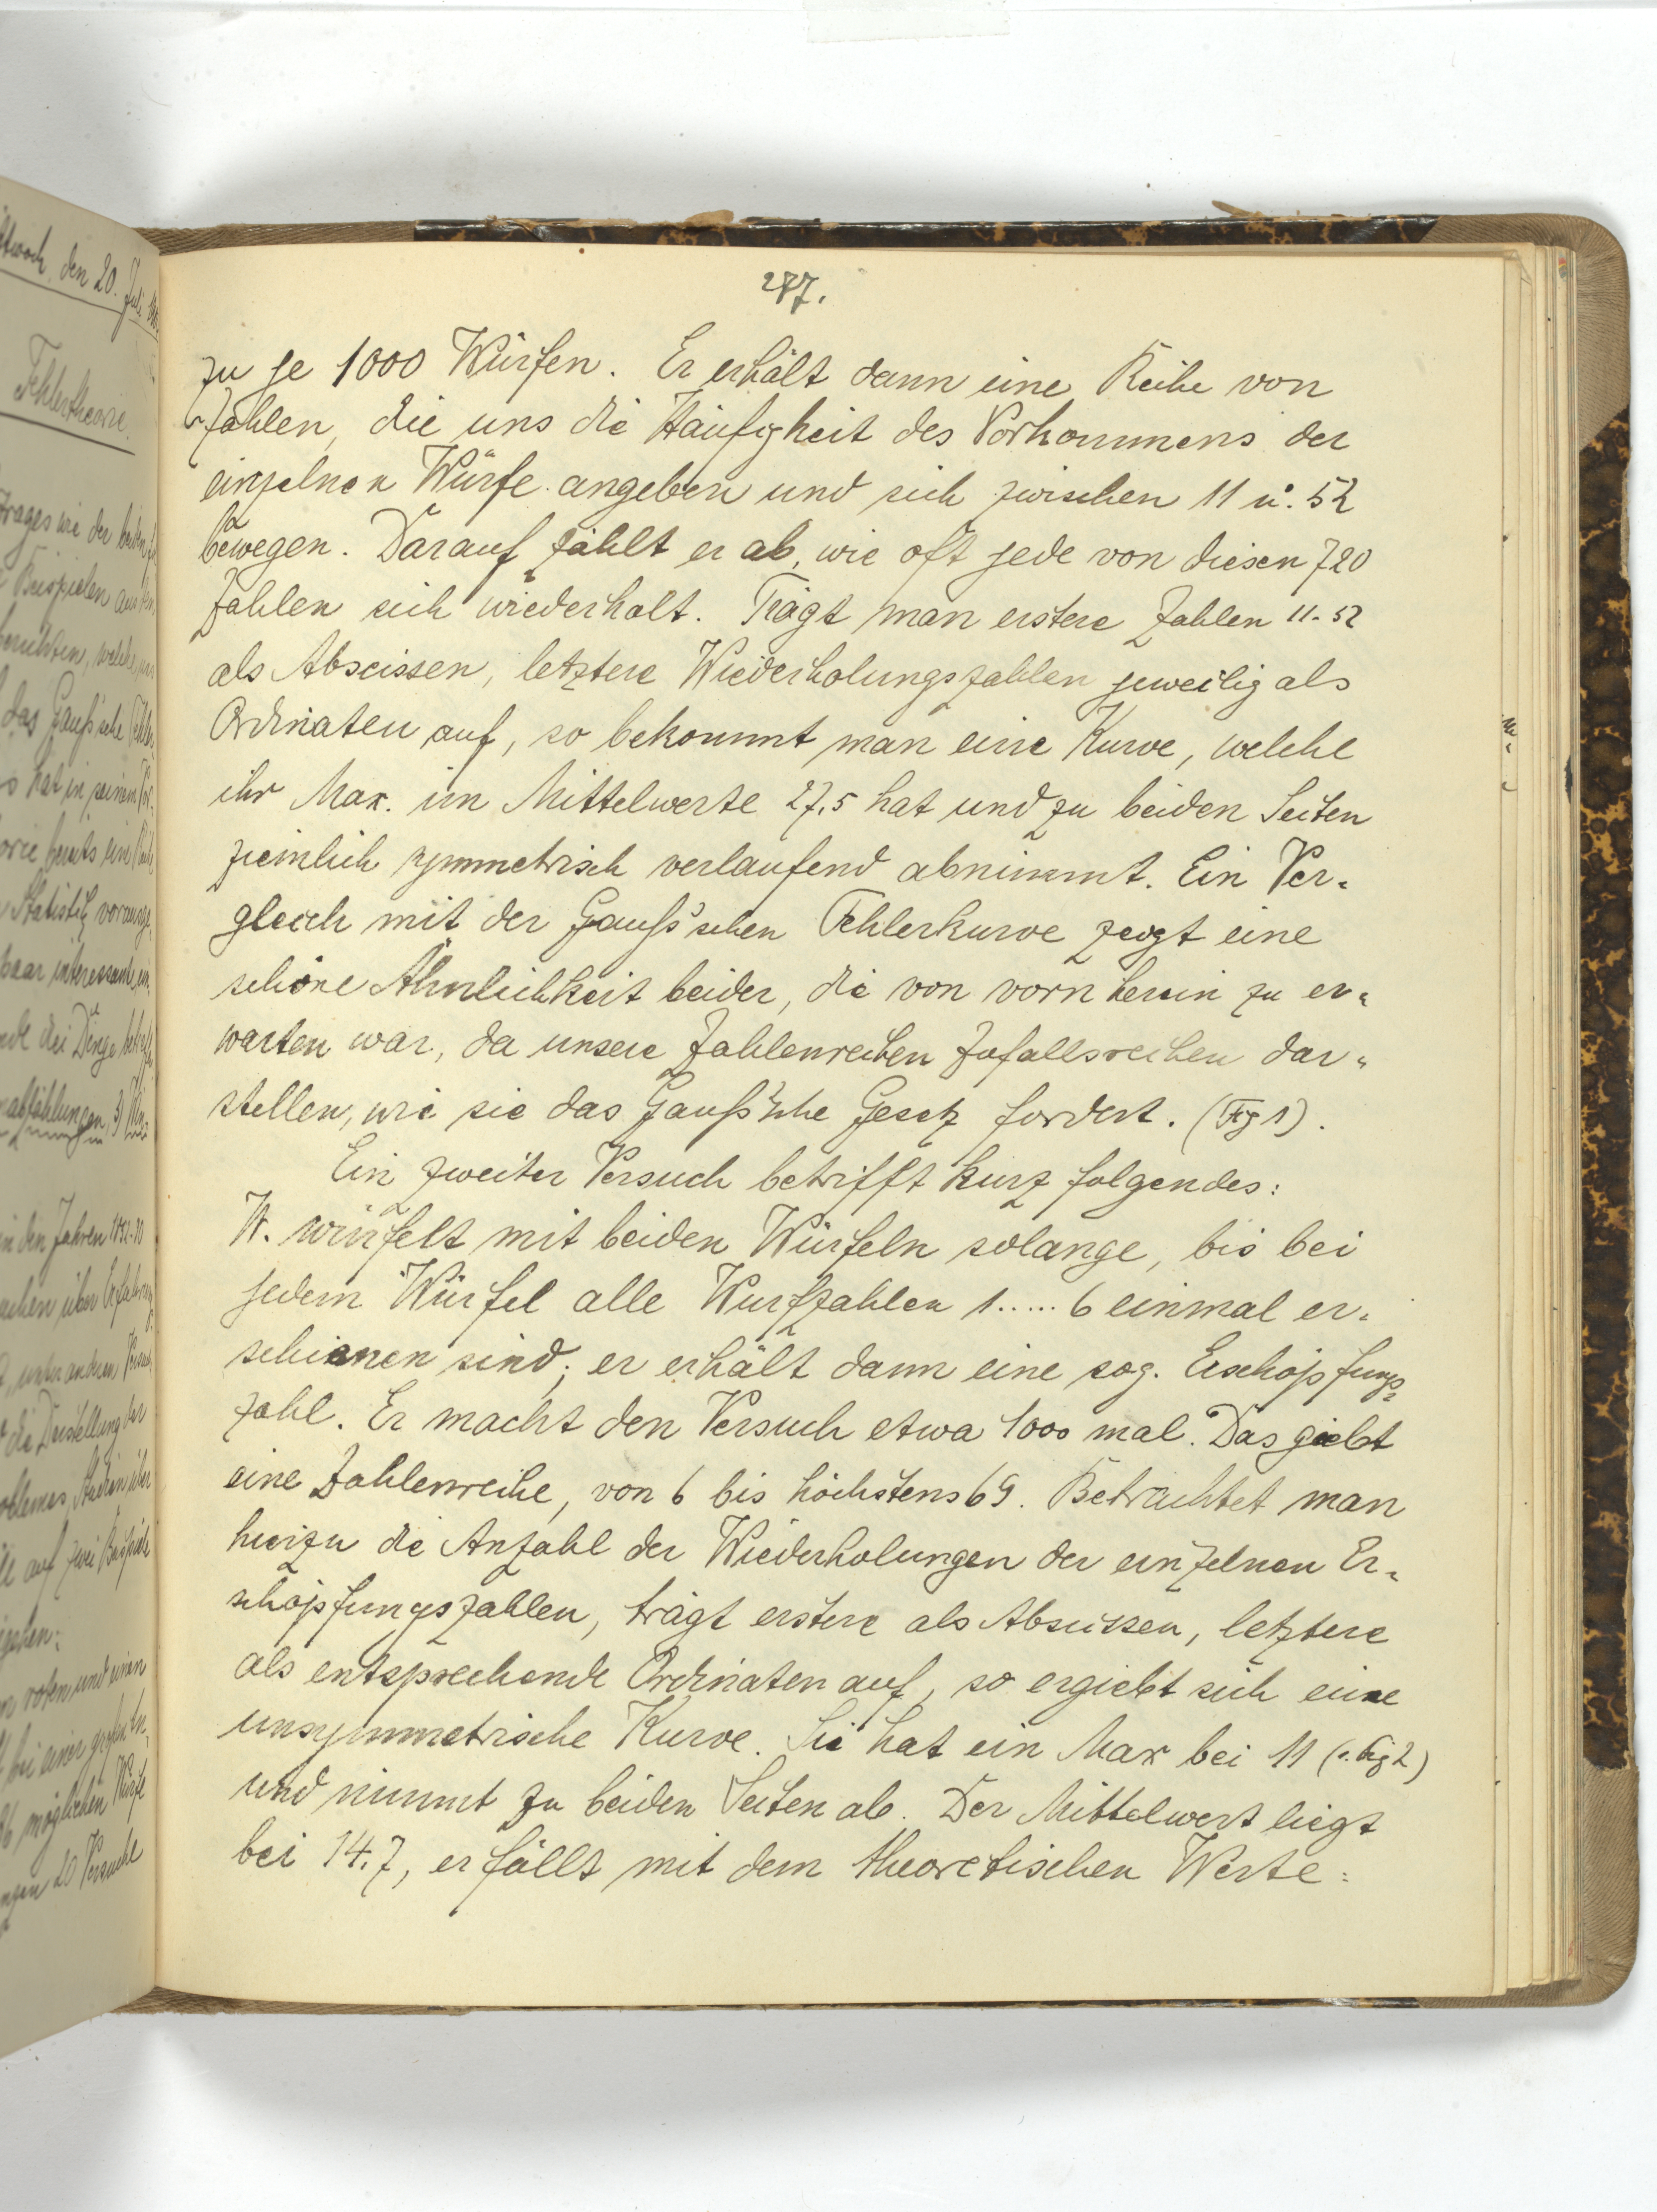 287.
zu je 1000 Würfen. Er erhält dann eine Reihe von
Zahlen, die uns die Häufigkeit des Vorkommens der
einzelnen Würfe angeben und sich zwischen 11 u. 52
bewegen. Darauf zählt er ab, wie oft jede von diesen 720
Zahlen sich wiederholt. Trägt man erstere Zahlen 11-52
als Abscissen, letztere Wiederholungszahlen jeweilig als
Ordinaten auf, so bekommt man eine Kurve, welche
ihr Max. im Mittelwerte 27,5 hat und zu beiden Seiten
ziemlich symmetrisch verlaufend abnimmt. Ein Ver-
gleich mit der Gauß'schen Fehlerkurve zeigt eine
schöne Ähnlichkeit beider, die von vorn herein zu er-
warten war, da unsere Zahlenreihen Zufallsreihen dar-
stellen, wie sie das Gauß'sche Gesetz fordert. (Fig 1).
Ein zweiter Versuch betrifft kurz folgendes:
W. würfelt mit beiden Würfeln solange, bis bei
jedem Würfel alle Wurfzahlen 1.....6 einmal er-
schienen sind; er erhält dann eine sog. Erschöpfungs-
zahl. Er macht den Versuch etwa 1000 mal. Das giebt
eine Zahlenreihe, von 6 bis höchstens 69. Betrachtet man
hierzu die Anzahl der Wiederholungen der einzelnen Er-
schöpfungszahlen, trägt erstere als Abscissen, letztere
als entsprechende Ordinaten auf, so ergiebt sich eine
unsymmetrische Kurve. Sie hat ein Max bei 11 (s. Fig 2)
und nimmt zu beiden Seiten ab. Der Mittelwert liegt
bei 14.7, er fällt mit dem theoretischen Werte: